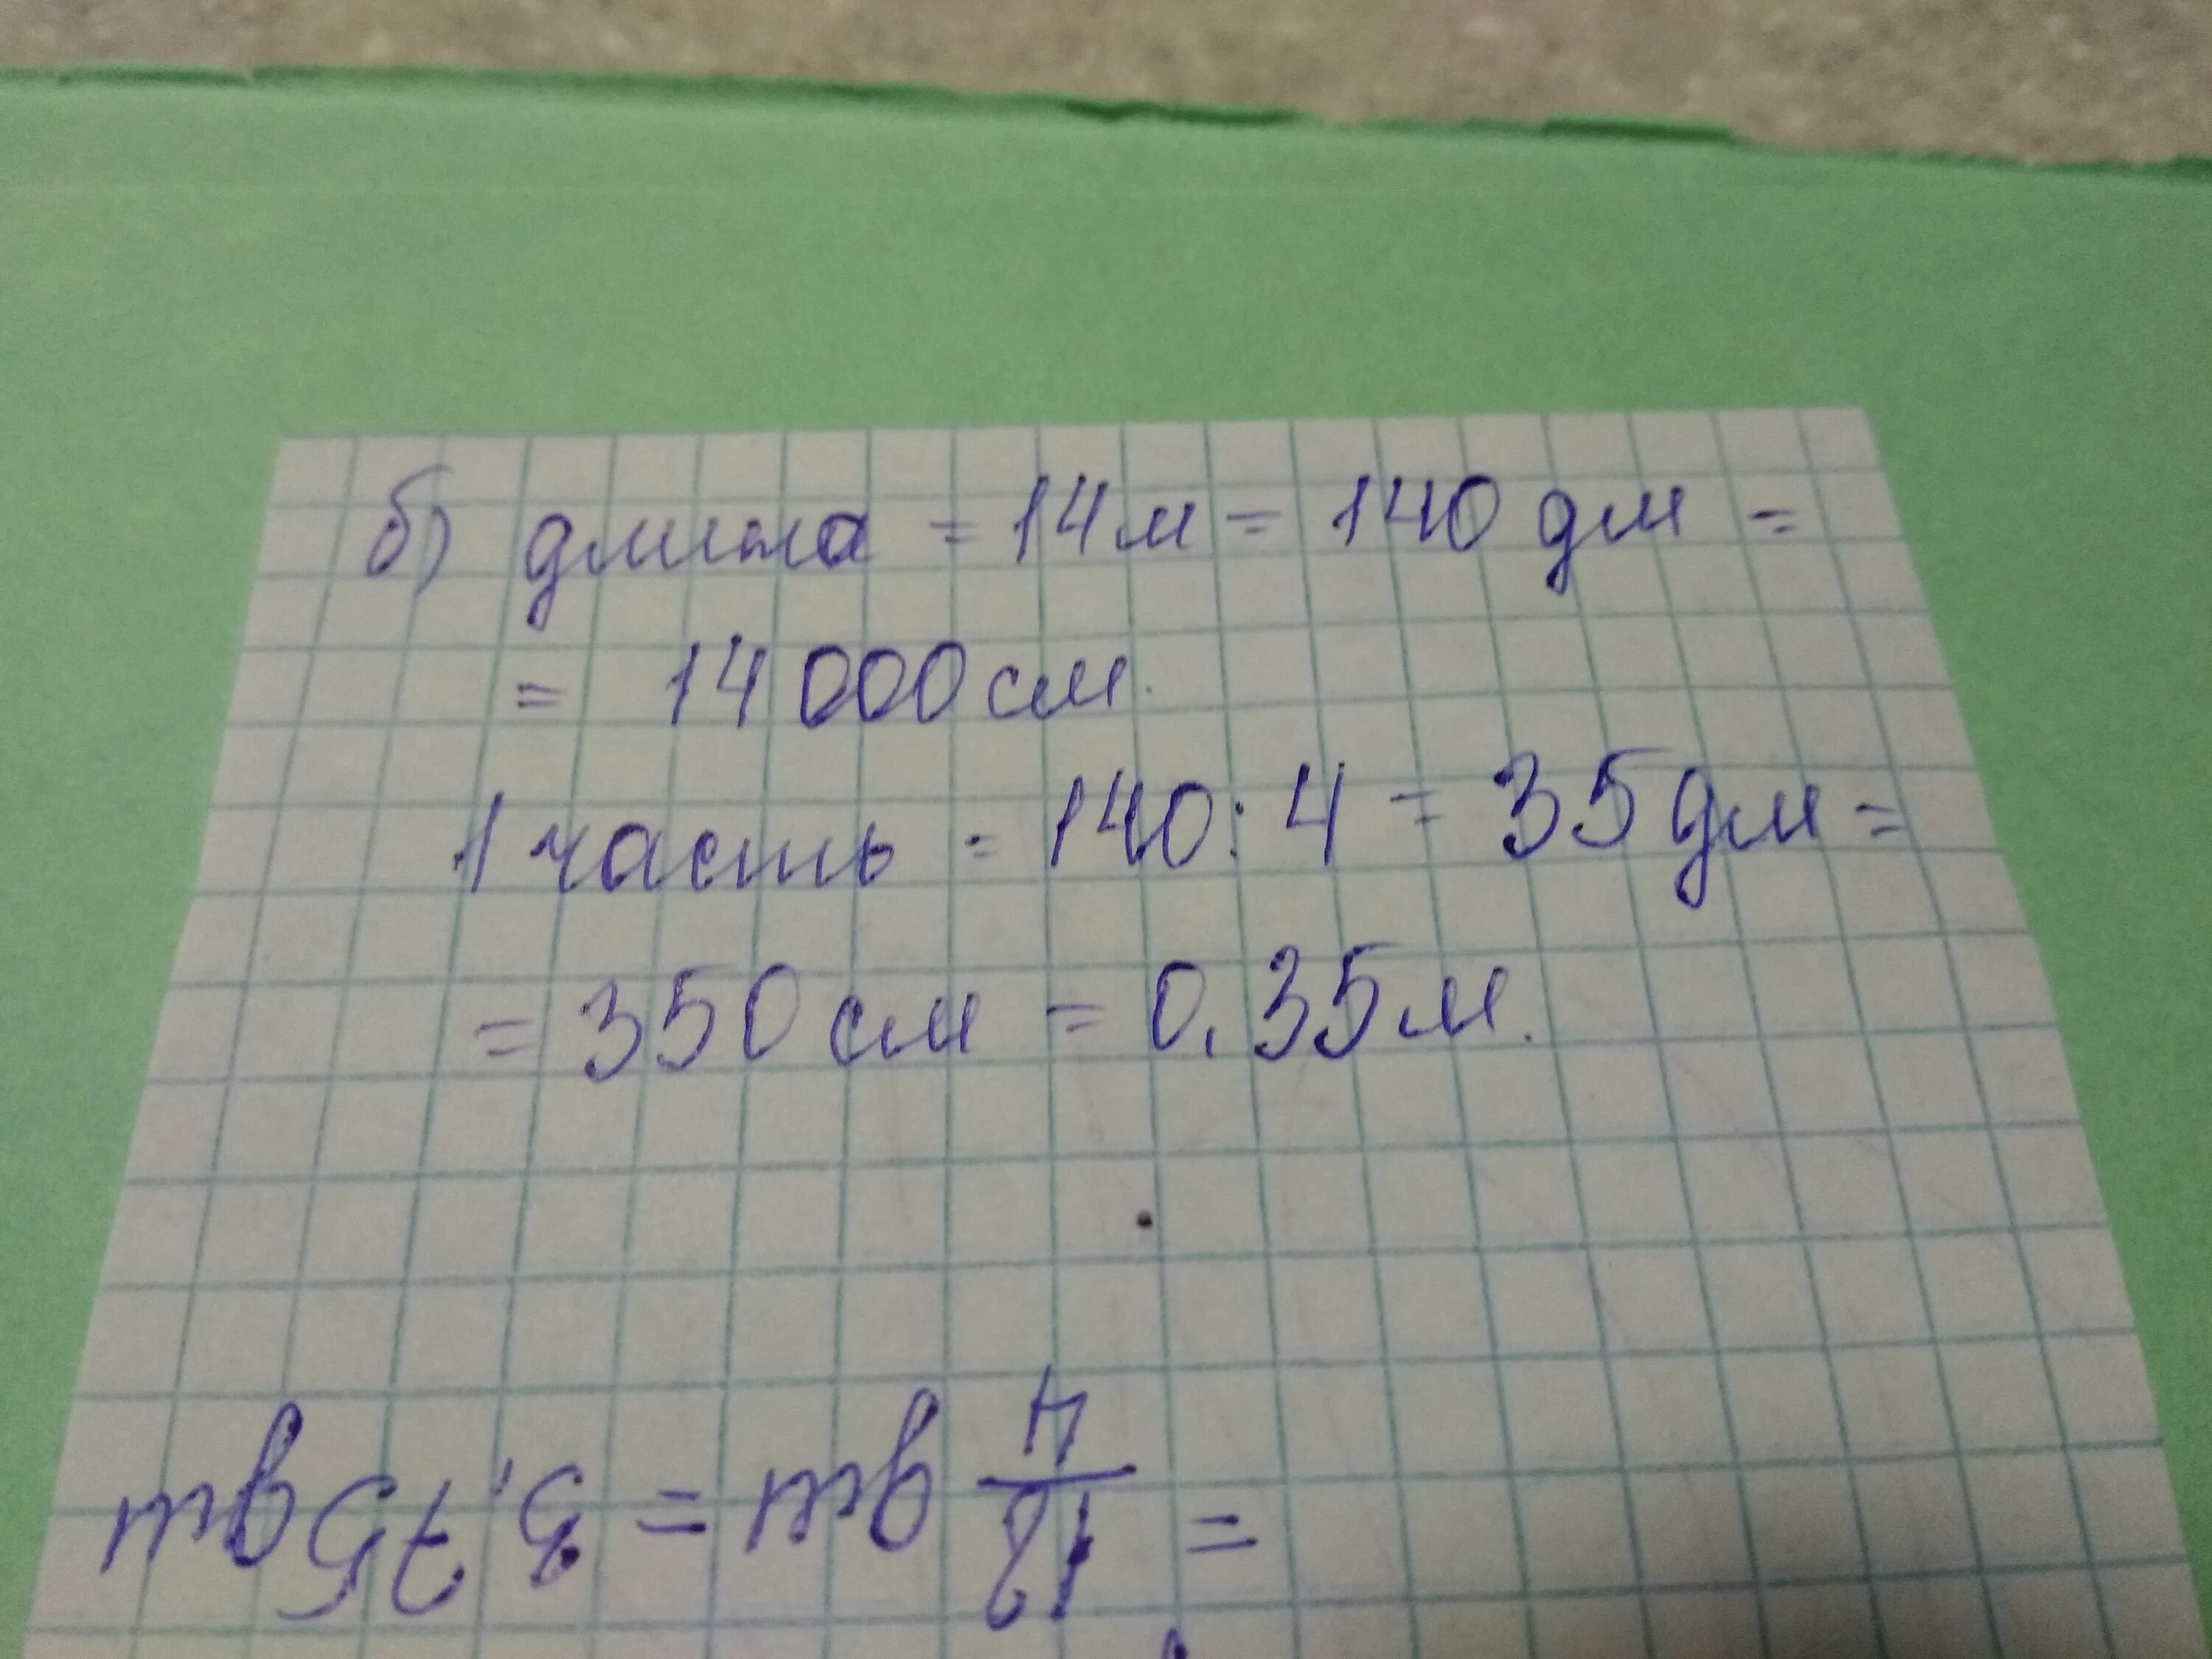 б) длина = 14м = 140 дм =
= 14 000 см.
1 часть = 140 : 4 = 35 дм =
= 350 см = 0,35 м.
= 15/4 дм = 3,75 дм